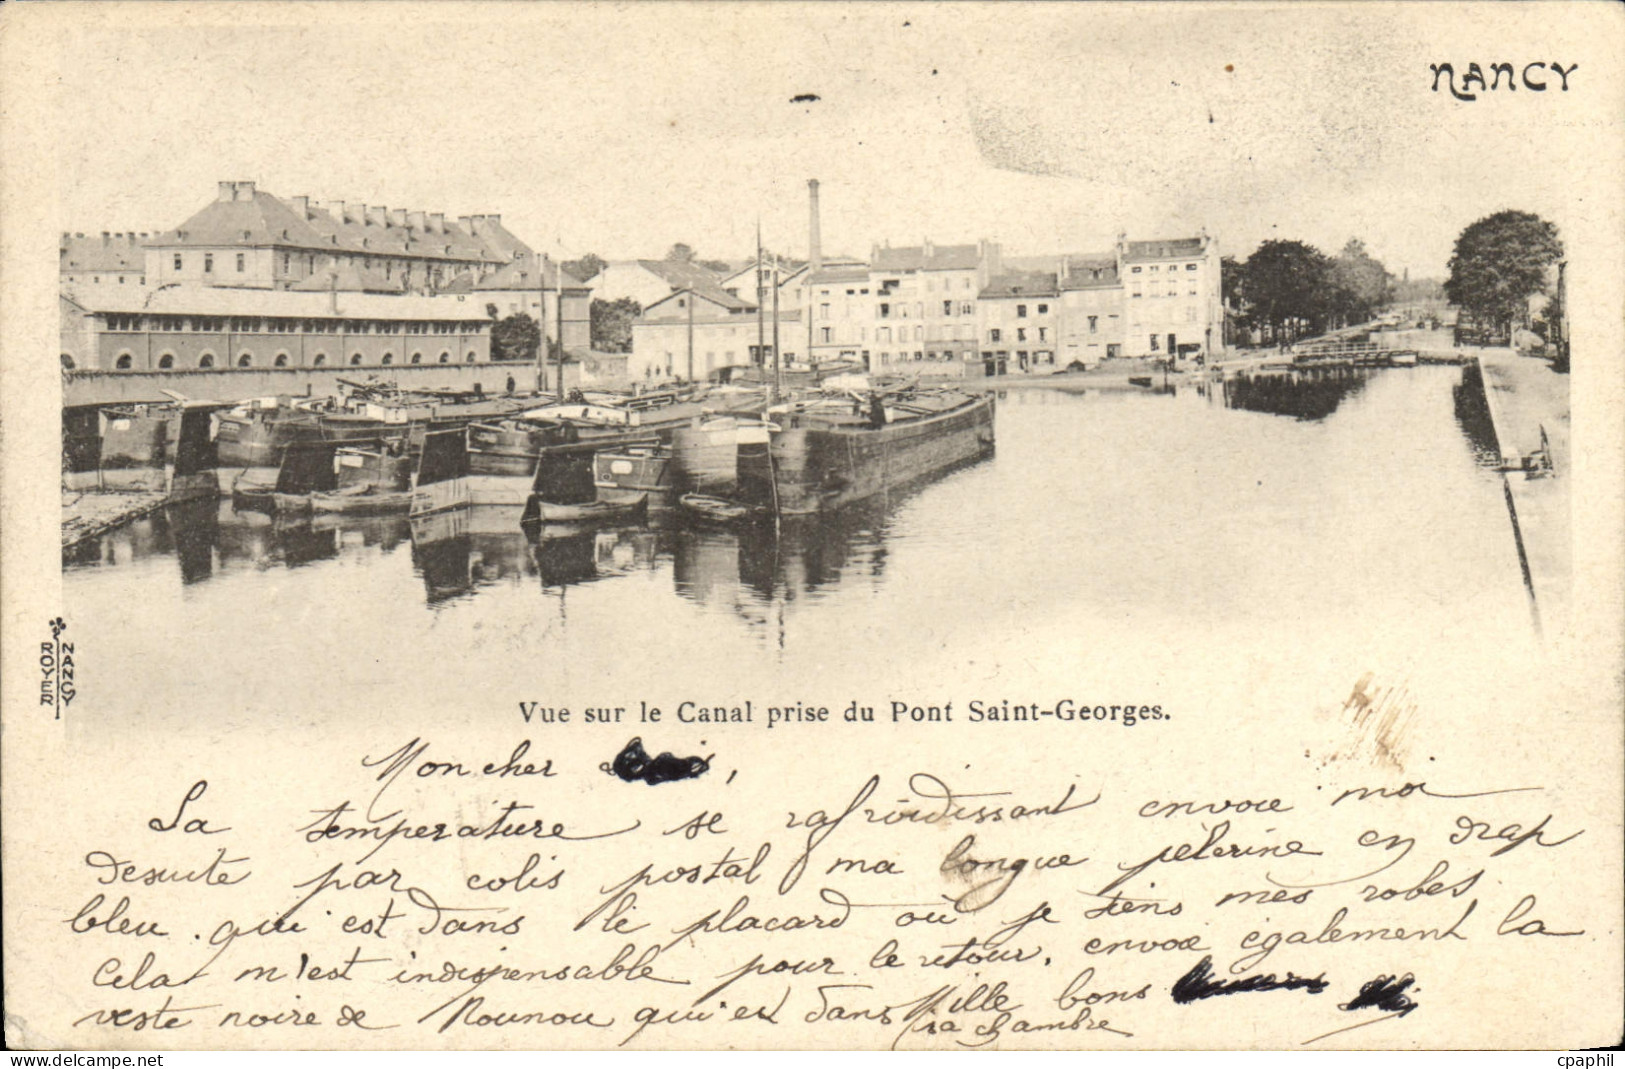 NANCY
ROYER
NANCY
Vue sur le Canal prise du Pont Saint-Georges.
Mon cher ,
La température se rafroidissant envoie moi
desuite par colis postal ma longue pèlerine en drap
bleu. qui est dans le placard où je tiens mes robes.
Cela m'est indispensable pour le retour. envoie également la
veste noire de Nounou qui est dans sa chambre
Mille bons
cpaphil